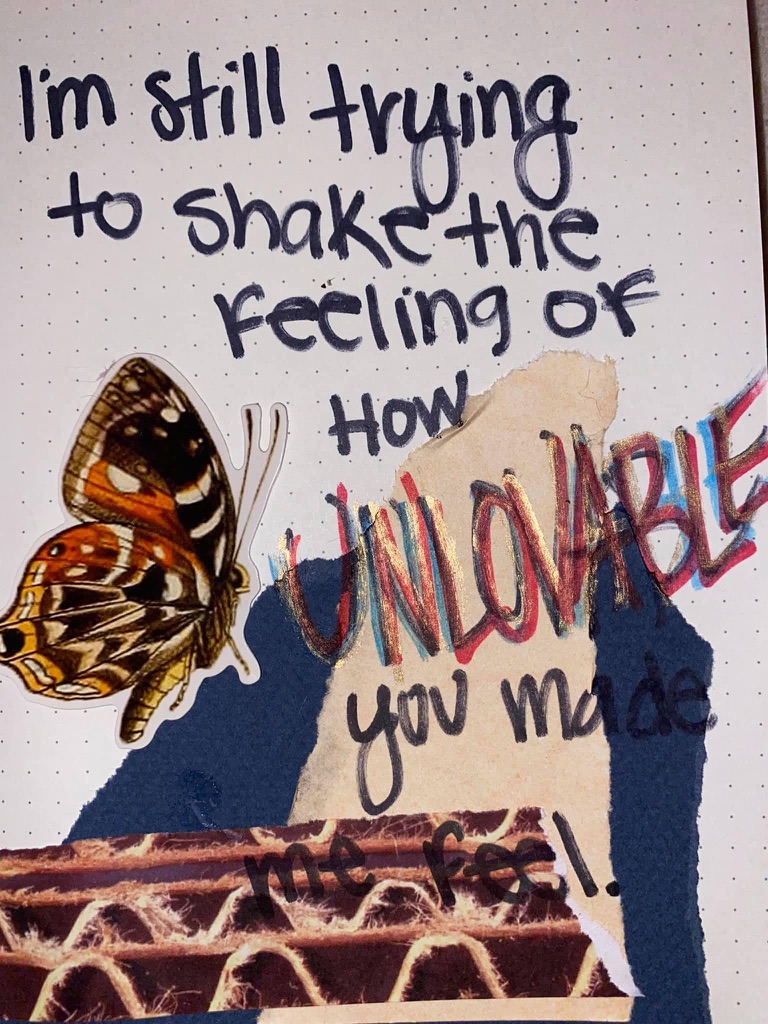 I'm still trying
to shake the
feeling of
How
UNLOVABLE
you made
me feel.